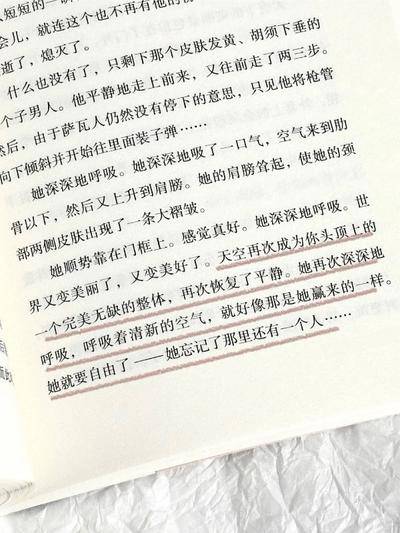 短短的一
会儿，就连这个也不再有他的
逝了，熄灭了。
什么也没有了，只剩下那个皮肤发黄、胡须下垂的
个子男人。他平静地走上前来，又往前走了两三步。
然后，由于萨瓦人仍然没有停下的意思，只见他将枪管
向下倾斜并开始往里面装子弹……
她深深地呼吸。她深深地吸了一口气，空气来到肋
骨以下，然后又上升到肩膀。她的肩膀耸起，使她的颈
部两侧皮肤出现了一条大褶皱。
她顺势靠在门框上。感觉真好。她深深地呼吸。世
界又变美丽了，又变美好了。天空再次成为你头顶上的
一个完美无缺的整体，再次恢复了平静。她再次深深地
呼吸，呼吸着清新的空气，就好像那是她赢来的一样。
她就要自由了——她忘记了那里还有一个人……